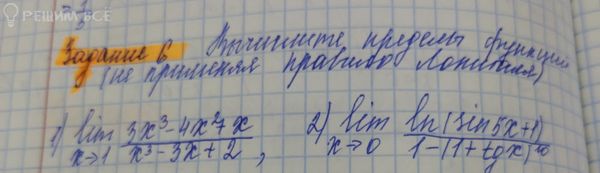 РЕШИМ ВСЁ
Задание 6 Вычислите пределы функций
(не применяя правило Лопиталя)
1) lim x→1 (3x³-4x²+x)/(x³-3x+2), 2) lim x→0 ln(sin5x+1)/(1-(1+tgx)¹⁰)